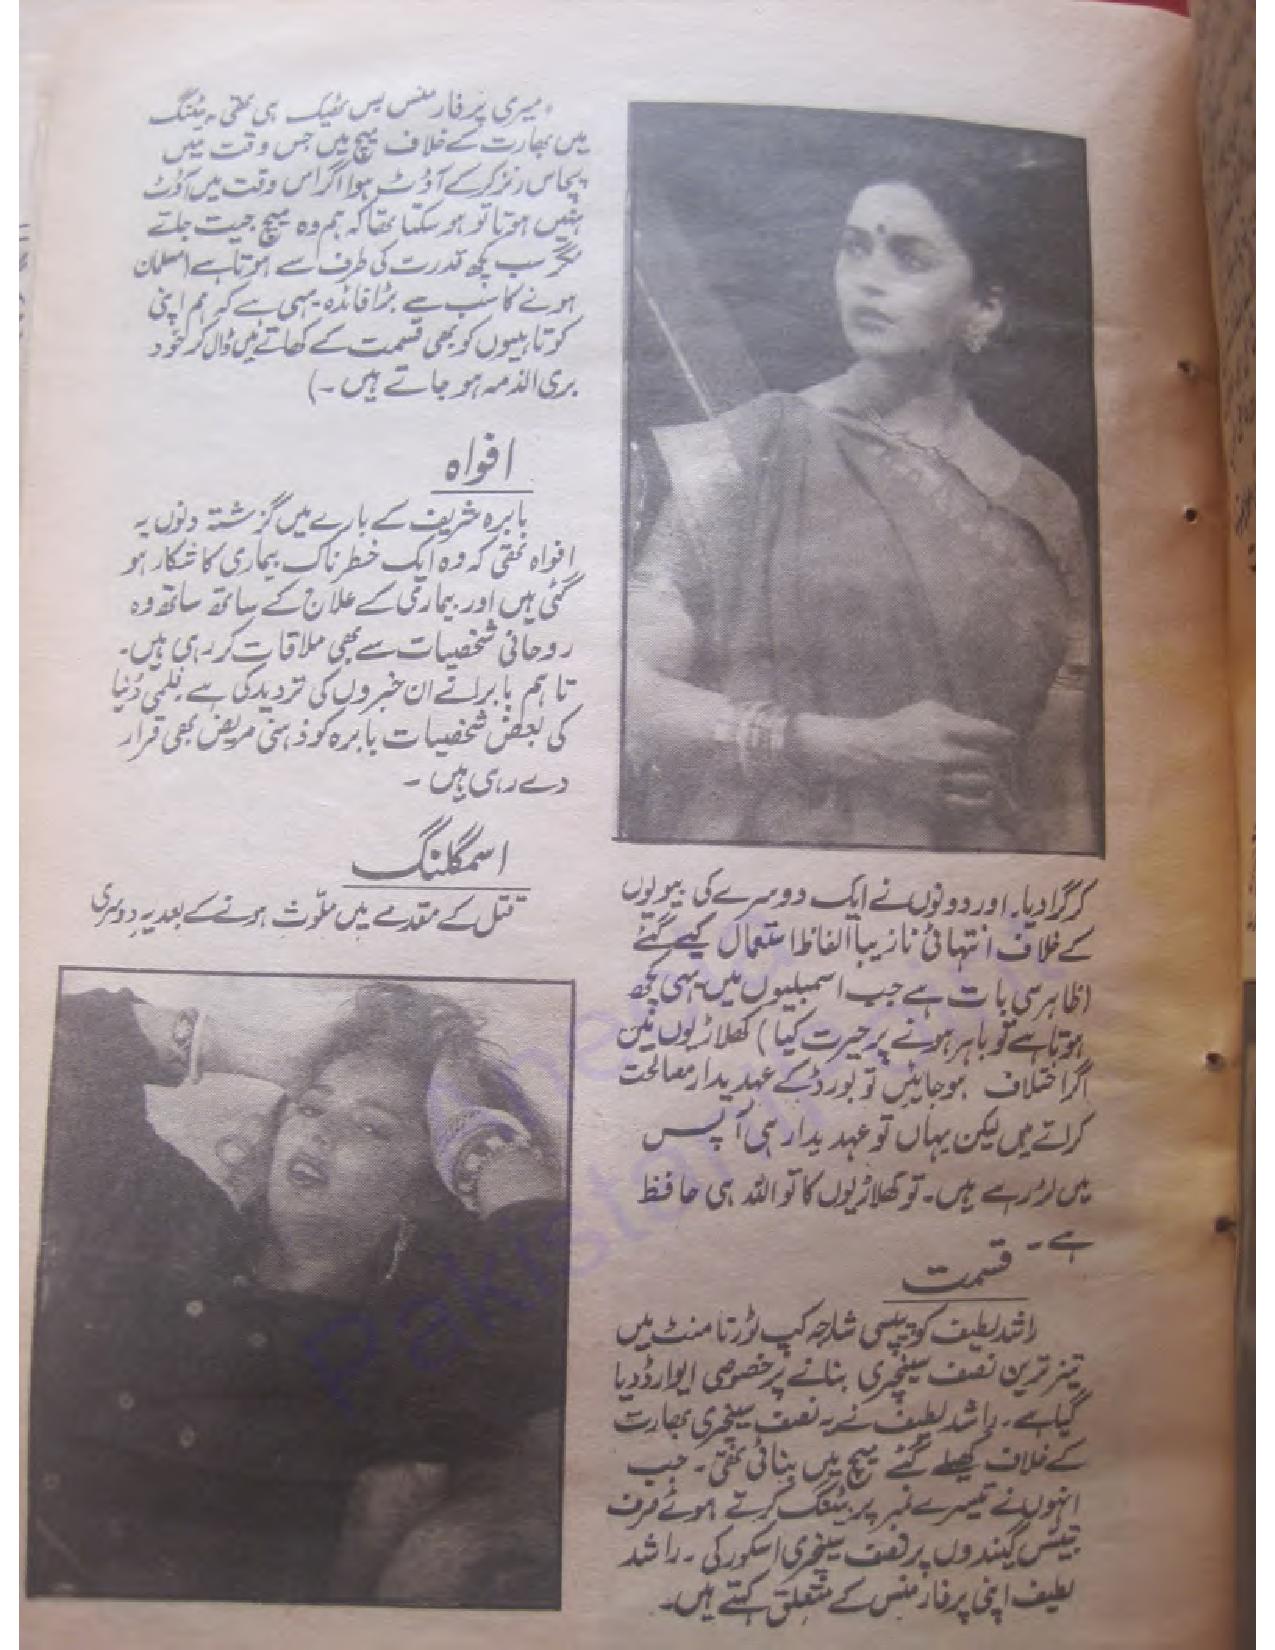 کر گرا دیا۔ اور دونوں نے ایک دوسرے کی بیویوں
کے خلاف انتہائی نازیبا الفاظ استعمال کیے گئے
(ظاہر سی بات ہے جب اسمبلیوں میں یہی کچھ
ہوتا ہے تو باہر ہونے پر حیرت کیا) کھلاڑیوں میں
اگر اختلاف ہو جائیں تو بورڈ کے عہدیدار مصالحت
کراتے ہیں لیکن یہاں تو عہدیدار ہی آپس
میں لڑ رہے ہیں۔ تو کھلاڑیوں کا تو اللہ ہی حافظ
ہے۔
قسمت
راشد لطیف کو پیپسی شارجہ کپ ٹورنامنٹ میں
تیز ترین نصف سینچری بنانے پر خصوصی ایوارڈ دیا
گیا ہے۔ راشد لطیف نے یہ نصف سینچری بھارت
کے خلاف کھیلے گئے میچ میں بنائی تھی۔ جب
انہوں نے تیسرے نمبر پر بیٹنگ کرتے ہوئے صرف
گیندوں پر نصف سینچری اسکور کی۔ راشد
لطیف اپنی پرفارمنس کے متعلق کہتے ہیں۔
"میری پرفارمنس بس ٹھیک ہی تھی۔ بیٹنگ
میں بھارت کے خلاف میچ میں جس وقت میں
پچاس رنز کر کے آؤٹ ہوا اگر اس وقت میں آؤٹ
نہیں ہوتا تو ہو سکتا تھا کہ ہم وہ میچ جیت جاتے
مگر سب کچھ قدرت کی طرف سے ہوتا ہے (مسلمان
ہونے کا سب سے بڑا فائدہ یہی ہے کہ ہم اپنی
کوتاہیوں کو بھی قسمت کے کھاتے میں ڈال کر خود
بری الذمہ ہو جاتے ہیں۔)
افواہ
بابرہ شریف کے بارے میں گزشتہ دنوں یہ
افواہ تھی کہ وہ ایک خطرناک بیماری کا شکار ہو
گئی ہیں اور بیماری کے علاج کے ساتھ ساتھ وہ
روحانی شخصیات سے بھی ملاقات کر رہی ہیں۔
تاہم بابرا نے ان خبروں کی تردید کی ہے فلمی دنیا
کی بعض شخصیات بابرہ کو ذہنی مریض بھی قرار
دے رہی ہیں۔
اسمگلنگ
قتل کے مقدمے میں ملوث ہونے کے بعد یہ دوسری